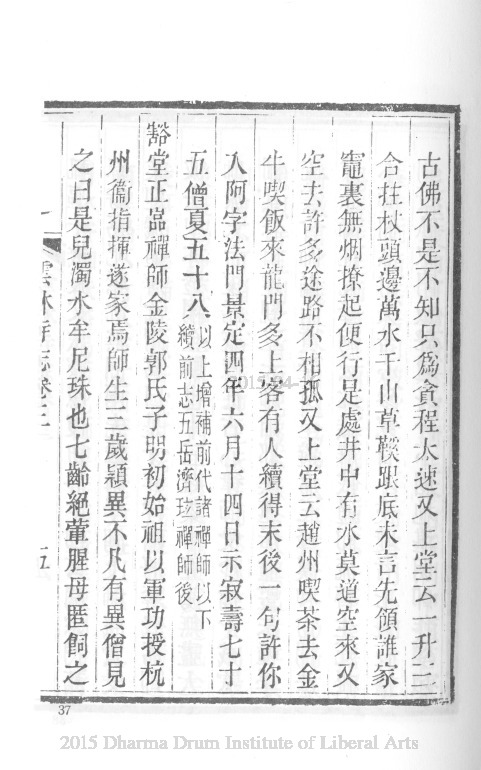 古佛不是不知只爲貪程太速又上堂云一升三
合拄杖頭邊萬水千山草鞵跟底未言先領誰家
竈裏無烟撩起便行是處井中有水莫道空來又
空去許多途路不相孤又上堂云趙州喫茶去金
牛喫飯來龍門多上客有人續得末後一句許你
入阿字法門景定四年六月十四日示寂壽七十
五僧夏五十八以上增補前代諸禪師以下
續前志五岳濟玹禪師後
豁堂正嵓禪師金陵郭氏子明初始祖以軍功授杭
州衞指揮遂家焉師生三歲穎異不凡有異僧見
之曰是兒濁水牟尼珠也七齡絕葷腥母匿飼之
雲林寺志卷三
五
37
2015 Dharma Drum Institute of Liberal Arts